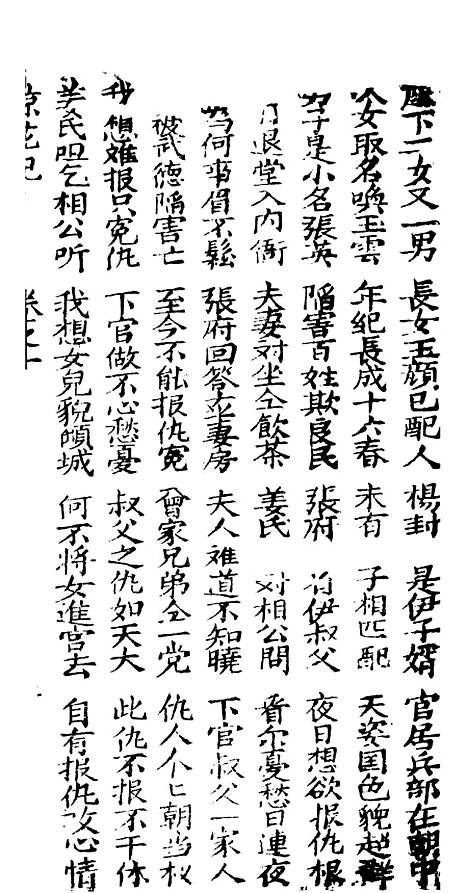 膝下二女又一男 長女玉顔已配人 楊封 是伊子婿 官居兵部在朝中
女取名喚玉雲 年紀長成十六春 未有 子相匹配 天姿国色貌超群
子是小名張英 陷害百姓欺良民 張府 伊叔父 夜日想欲报仇根
退堂入内衙 夫妻对坐仝飲茶 姜氏 对相公問 看尔憂愁日連夜
為何事眉不鬆 張府回答妻房 夫人难道不知曉 下官叔父一家人
被武德陷害亡 至今不能报仇冤 曾家兄弟仝一党 仇人个匕朝当权
我想难报只冤仇 下官做不心愁憂 叔父之仇如天大 此仇不报不干休
姜氏呾乞相公听 我想女兒貌傾城 何不将女進宮去 自有报仇改心情
花 卷之一